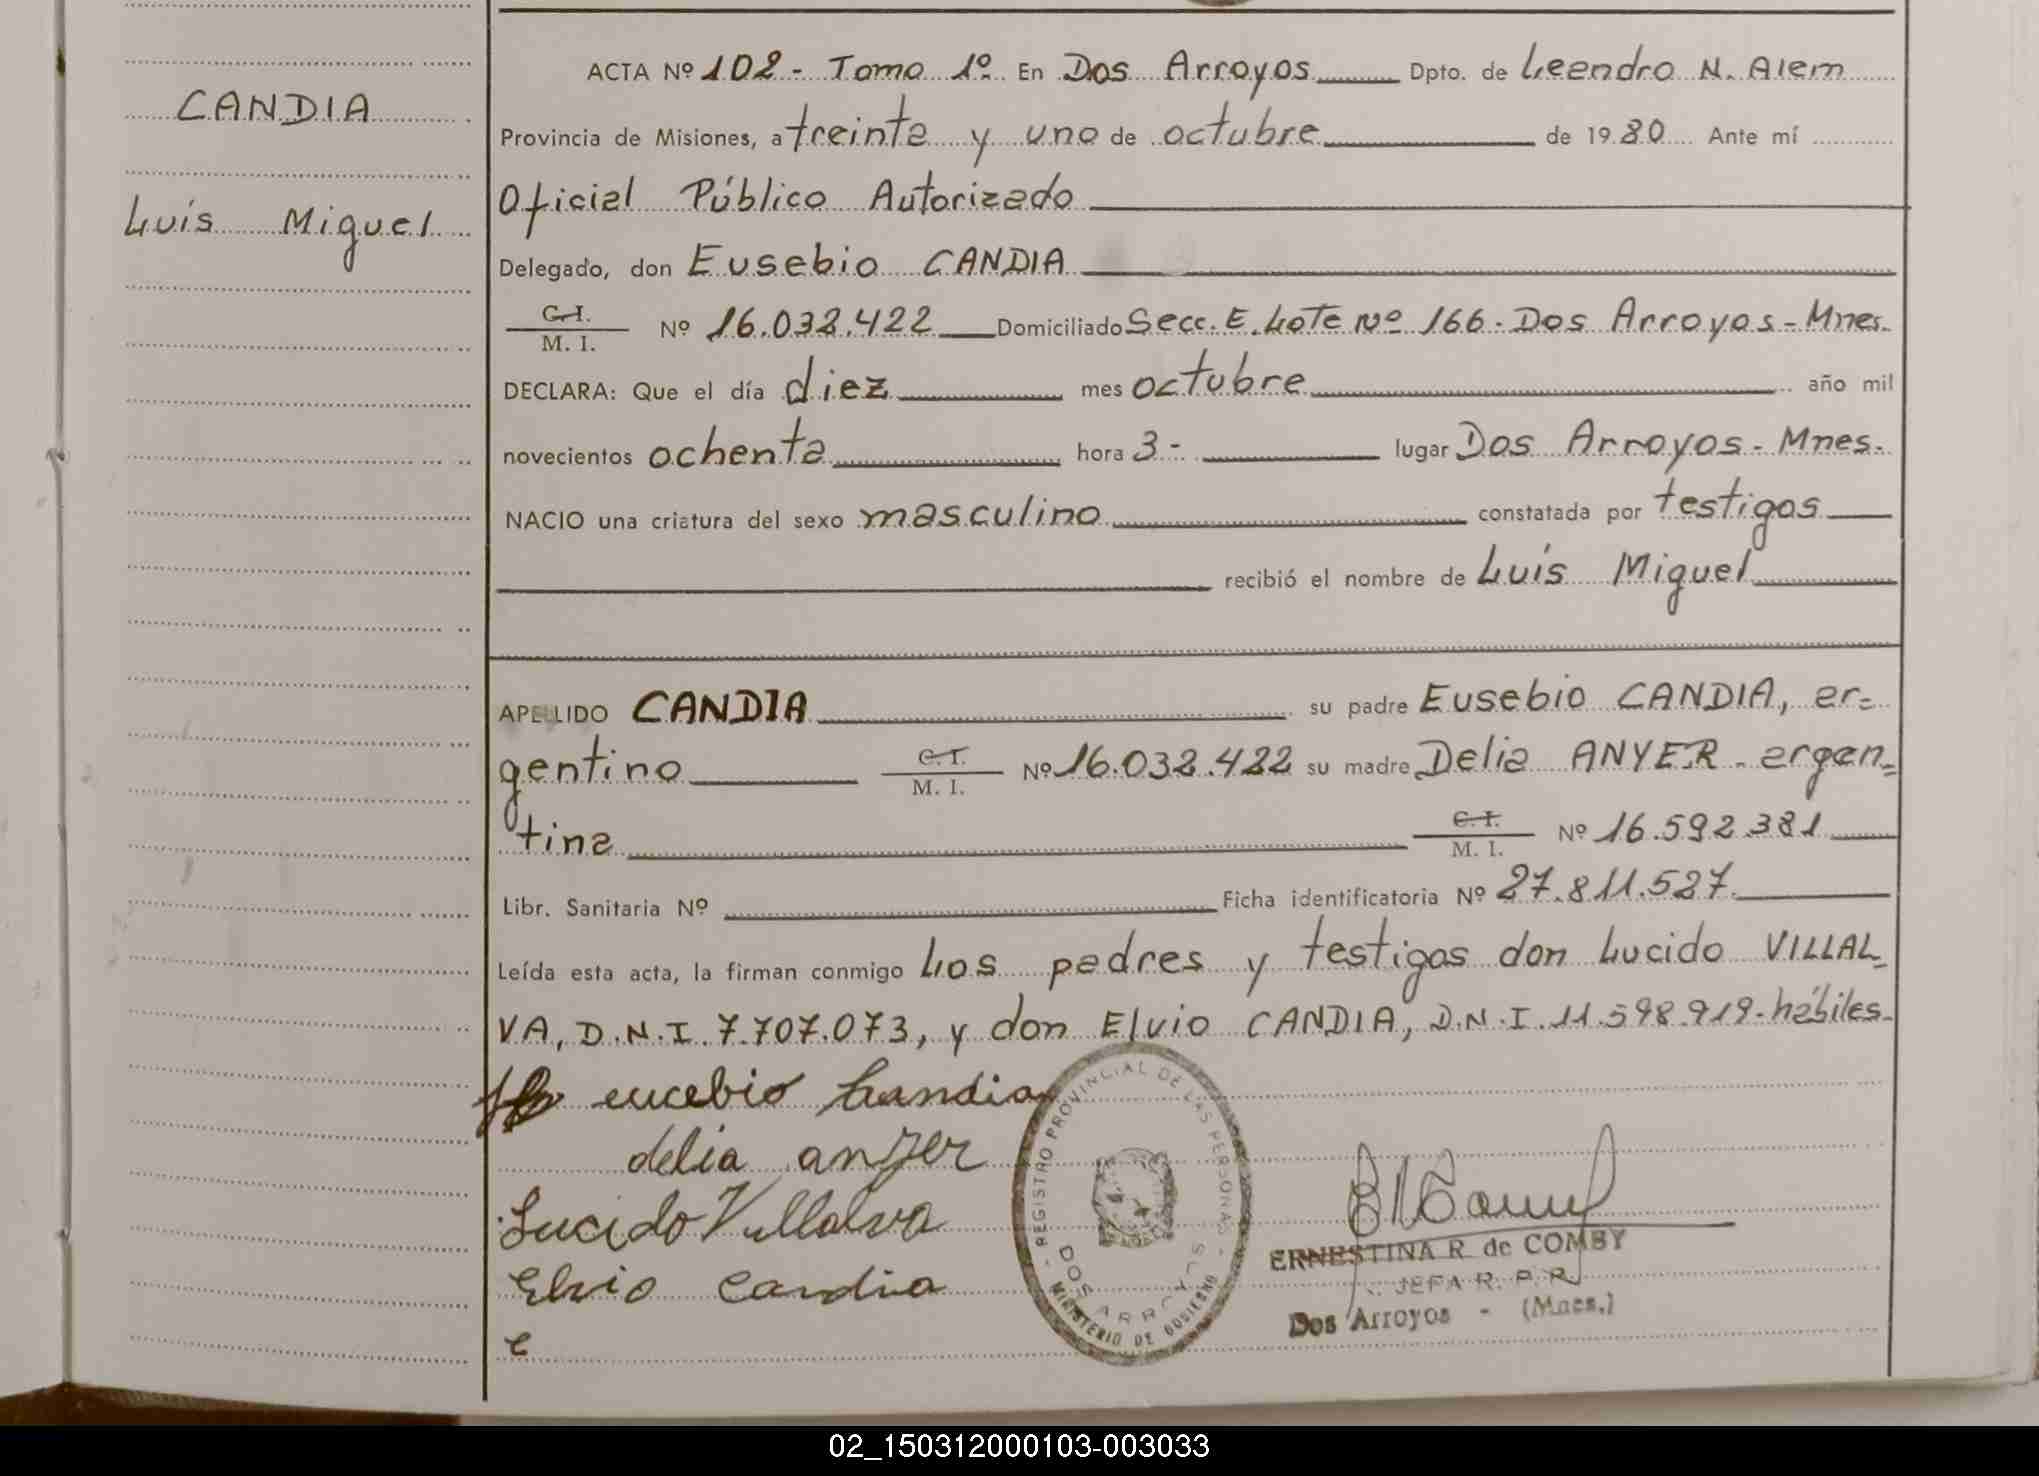 CANDIA
Luís Miguel
ACTA Nº 102 - Tomo 1º. En Dos Arroyos Dpto. de Leandro N. Alem
Provincia de Misiones, a treinta y uno de octubre de 1980 Ante mí
Oficial Público Autorizado
Delegado, don Eusebio CANDIA
C.I. / M. I. Nº 16.032.422 Domiciliado Secc. E. Lote Nº 166 - Dos Arroyos - Mnes.
DECLARA: Que el día diez mes octubre año mil
novecientos ochenta hora 3- lugar Dos Arroyos - Mnes.
NACIO una criatura del sexo masculino constatada por testigos
recibió el nombre de Luís Miguel
APELLIDO CANDIA su padre Eusebio CANDIA, ar=
gentino C.I. / M. I. Nº 16.032.422 su madre Delia ANYER - argen=
tina C.I. / M. I. Nº 16.592.381
Libr. Sanitaria Nº Ficha identificatoria Nº 27.811.527.
Leída esta acta, la firman conmigo Los padres y testigos don Lucido VILLAL_
VA, D.N.I. 7.707.073, y don Elvio CANDIA, D.N.I. 11.598.919 - hábiles.
eucebio Candia
delia anyer
Lucido Villalva
Elvio Candia
e
- REGISTRO PROVINCIAL DE LAS PERSONAS -
DOS ARROYOS
MINISTERIO DE GOBIERNO
ERNESTINA R. de COMBY
JEFA R. P. P.
Dos Arroyos - (Mnes.)
02_150312000103-003033